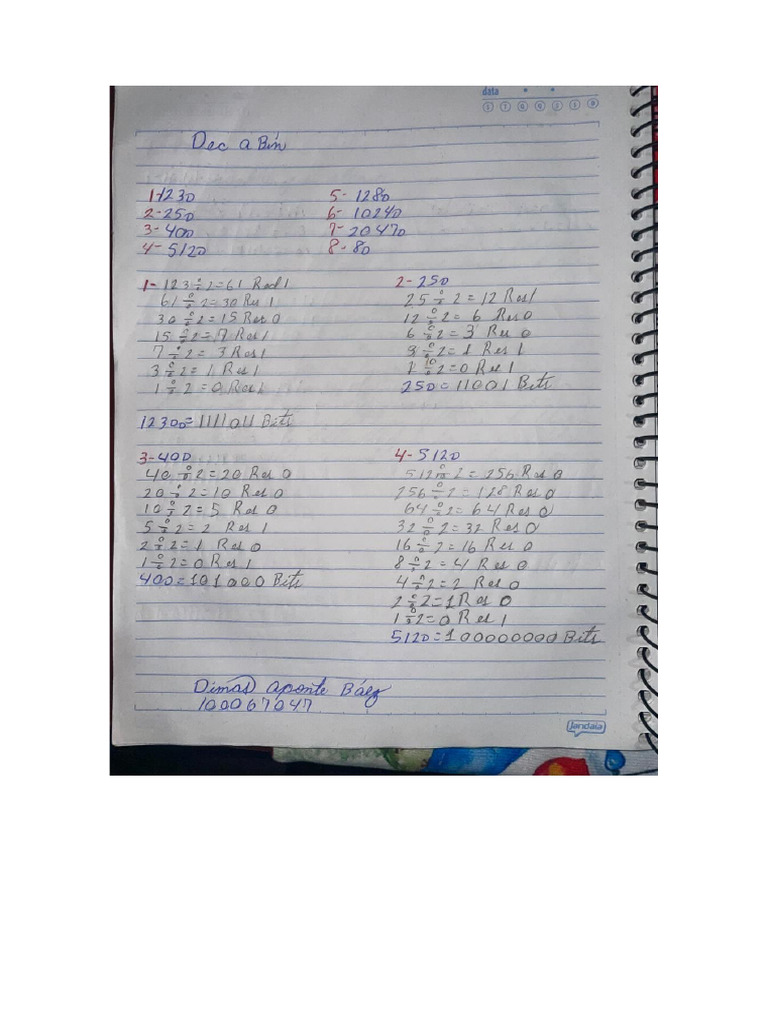 data
1 2 3 4 5 6 7
Dec a Bin
1-123D
2-25D
3-40D
4-512D
5-128D
6-1024D
7-2047D
8-8D
1-123÷2=61 Res1
61÷2=30 Res1
30÷2=15 Res 0
15÷2=7 Res1
7÷2=3Res1
3÷2=1 Res1
1÷2=0Res1
123D=1111011 Bits
2-25D
25÷2=12 Res1
12÷2=6 Res0
6÷2=3 Res 0
3÷2=1 Res 1
1÷2=0 Res 1
25D=11001 Bits
3-40D
40÷2=20 Res 0
20÷2=10 Res 0
10÷2=5 Res 0
5÷2=2 Res 1
2÷2=1 Res 0
1÷2=0 Res1
40D=101000 Bits
4-512D
512÷2=256 Res 0
256÷2=128 Res 0
64÷2=64 Res 0
32÷2=32 Res 0
16÷2=16 Res 0
8÷2=4 Res 0
4÷2=2 Res 0
2÷2=1 Res 0
1÷2=0 Res 1
512D=100000000 Bits
Dimas aponte Báez
100067047
jandaia